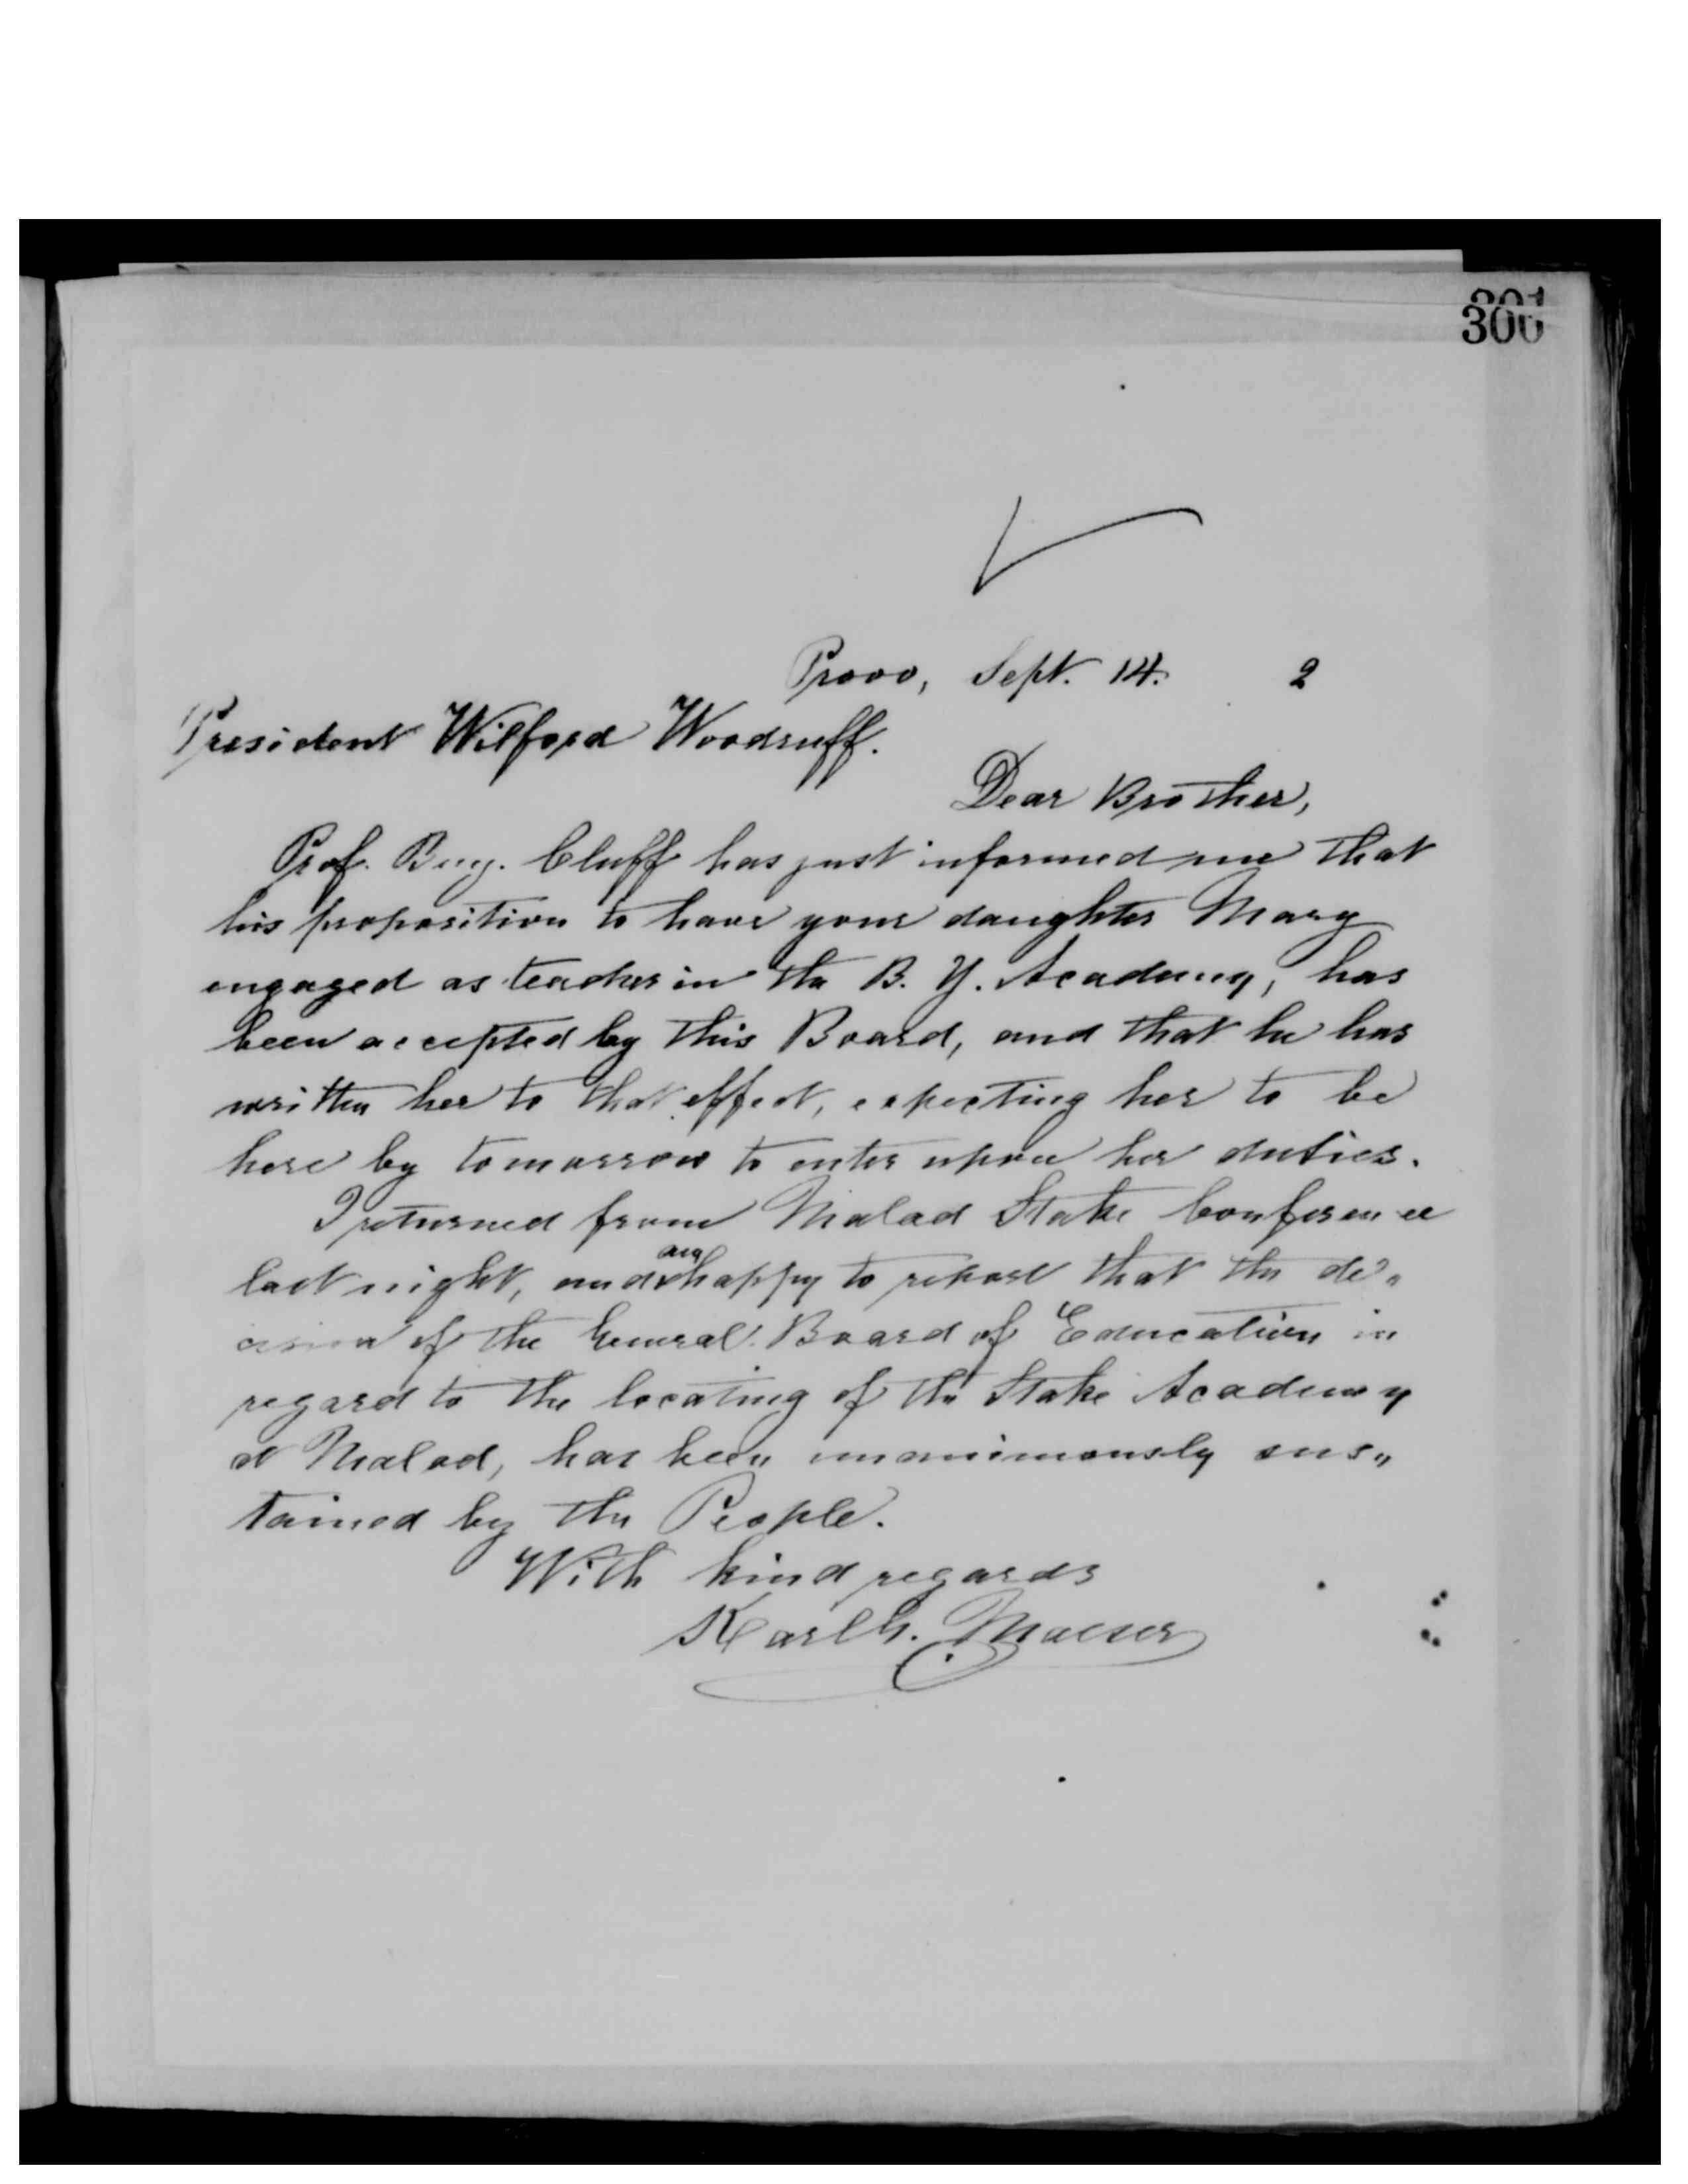 300
Provo, Sept. 14. 2
President Wilford Woodruff.
Dear Brother,
Prof. Benj. Cluff has just informed me that
his proposition to have your daughter Mary
engaged as teacher in the B. Y. Academy, has
been accepted by this Board, and that he has
written her to that effect, expecting her to be
here by tomorrow to enter upon her duties.
I returned from Malad Stake Conference
last night, and am happy to report that the de„
cision of the General Board of Education in
regard to the locating of the Stake Academy
at Malad, has been unanimously sus„
tained by the People.
With kind regards
Karl G. Maeser